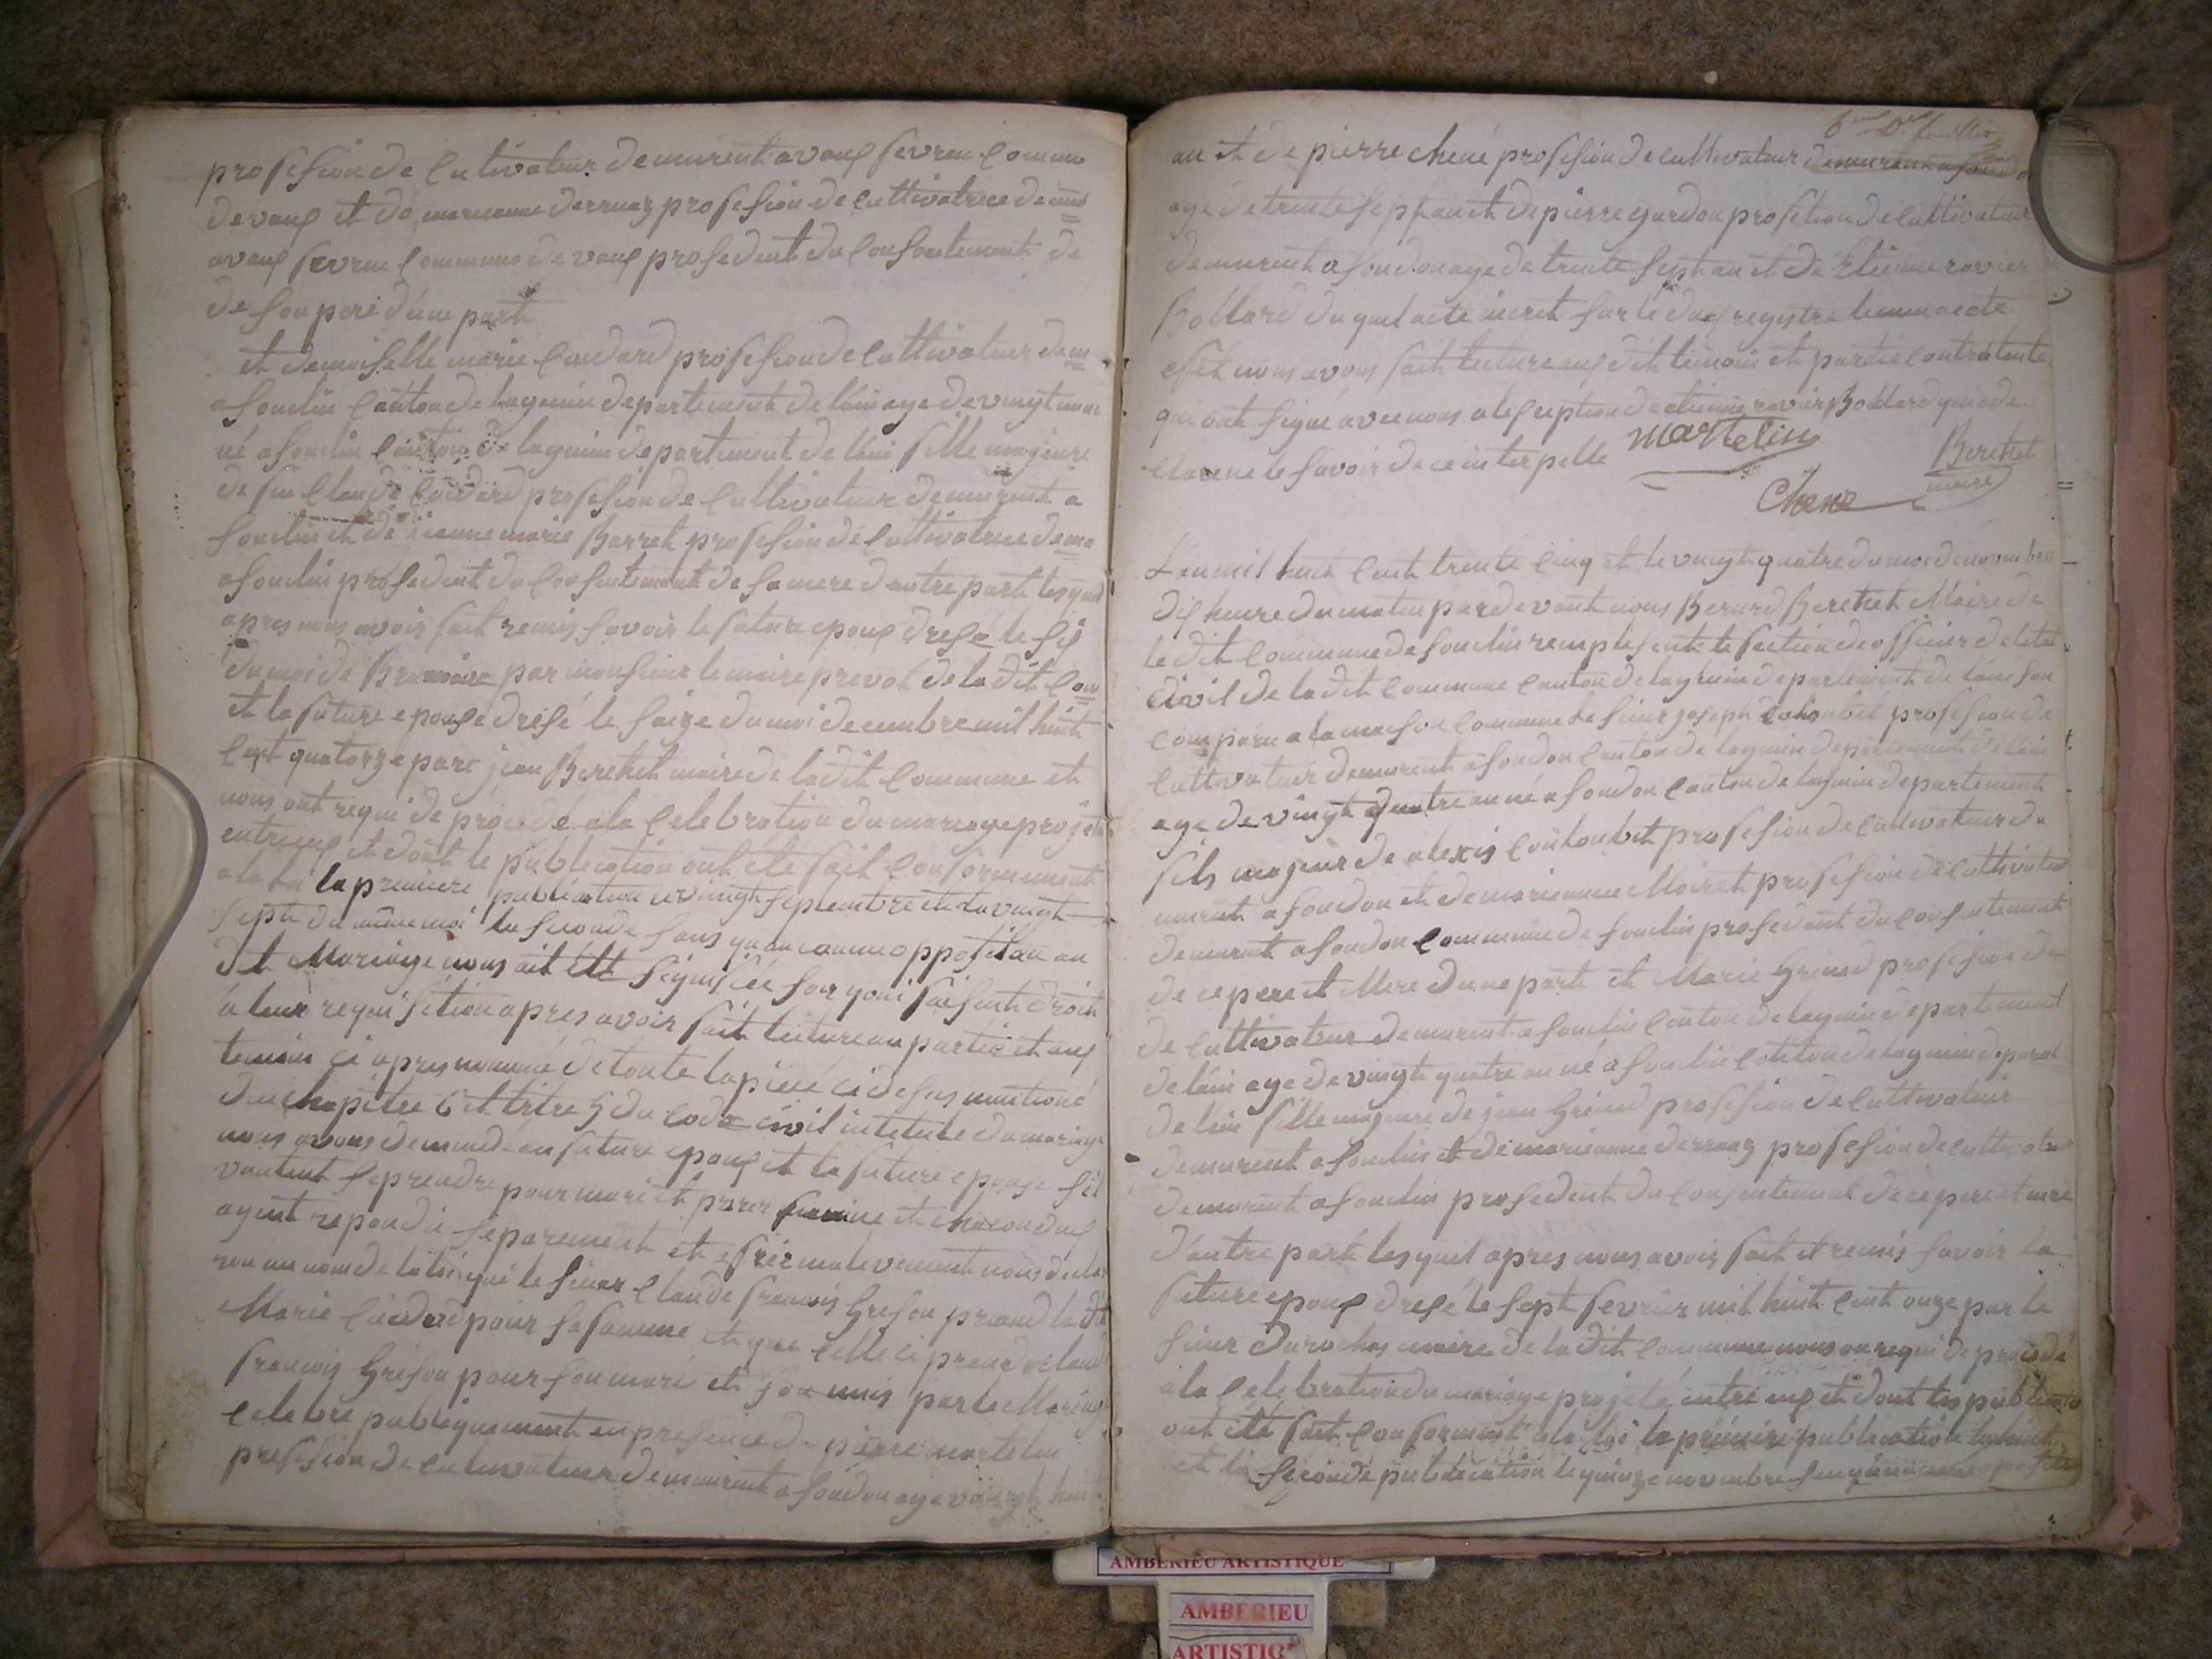 profesion de cultivateur demurent a vaux fevreu commu
de vaux et de marianne derruaz profesion de cultivatrice demu
a vaux fevreu commune de vaux profedent du consentement de
de son pere d'une part
et demoiselle marie cordard profesion de cultivateur dem
a souclin canton de lagnieu departement de l'ain age de vingt un an
né a souclin canton de lagnieu departement de l'ain fille majeure
de feu claude profesion de cultivateur demurent a
souclin et de jeanne marie Barret profesion de cultivatrice demu
a souclin profedent du consentement de sa mere d'autre part lesquel
apres nous avoir fait remis savoir le future epoux dresé le six
du moi de Brumaire par monsieur le maire prevot de la dit com
et la future epouse dresé le saize du moi decembre mil huit
cent quatorze par jean Berthet maire de la dit commune et
nous ont requi de procedé a la celebration du mariage projeté
entre eux et dont le publication ont été fait conformement
a la loi la premiere publication le vingt septembre et la vingt
sept du même moi la seconde sans qu'aucunne opposition au
dit Mariage nous ait été signifiée
a leur requisition apres avoir fait lecture au partie et aux
temoin ci apres nommé de toute la piece ci desus mentioné
du chapitre 6 et titre 5 du code civil intitulé du mariage
nous avons demandé au future epoux et la future epouse s'il
veulent se prendre pour mari et pour femme et chacun d'eux
ayent repondu separement et afirmativement nous declar
ron au nom de la loi que le sieur claude francois Greson prand la dit
Marie pour sa famme et que celle ci prand claude
francois Greson pour son mari et son unis par le Mariage
celebre publiquement en presence de pierre martelin
profesion de cultivateur demurent a soudon age vingt huit
6eme feuillet
an et de pierre chené profesion de cultivateur demurent a soudo
age de trente sept an et de pierre gardon profetion de cultivateur
demurent a soudon age de trente sept an et de Etienne ravier
Bollard du quel acte incrit sur le dux registre
efet nous avons fait lecture aux dit temoin et partie contratente
qui ont signé avec nous a lexeption de etienne ravier Bollard qui a de
clare ne le savoir de ce interpellé
martelin
Berthet
maire
Chene
L'an mil huit cent trente cinq et le vingt quatre du moi de novembre
dix heure du matin par devant nous Berard Berthet Maire de
le dit commune de souclin remplisent le fection de officier de létat
civil de la dit commune canton de lagnieu departement de l'ain son
comparu a la maison commune le sieur joseph profesion de
cultivateur demurent a soudon canton de lagnieu departement de l'ain
age de vingt quatre an né a soudon canton de lagnieu departement
fils majeur de alexis profesion de cultivateur de
murent a soudon et de marianne Moiret profesion de cultivateur
demurent a soudon commune de souclin profedent du consentement
de ce pere et Mere d'une part et Marie Grinad profesion de
de cultivateur demurent a souclin canton de lagnieu departement
de l'ain age de vingt quatre an né a souclin canton de lagnieu depart
de l'ain fille majeure de jean Grinad profesion de cultivateur
demurent a souclin et de marianne derruaz profesion de cultivateur
demurent a souclin profedent du consentement de ce pere et mere
d'autre part lesquel apres nous avoir fait et remis savoir la
future epoux dresé le sept fevrier mil huit cent onze par le
sieur Durochas maire de la dit commune nous on requi de procedé
a la celebration du mariage projeté entre eux et dont les publication
ont été fait conforment a la loi la première publication le huit
et la seconde publication le quinze novembre
AMBERIEU ARTISTIQUE
AMBERIEU
ARTISTIQ